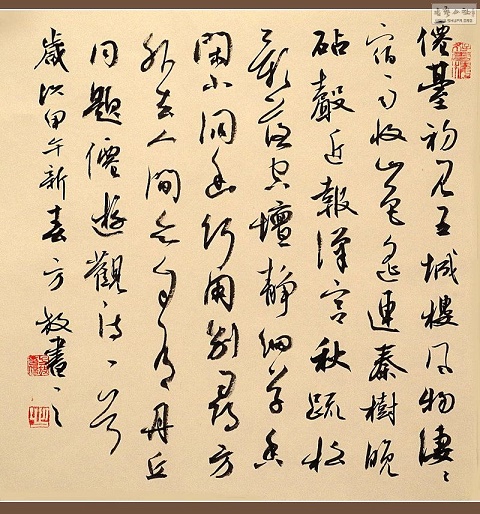 僊臺初見五城樓風物淒〻
宿雨收山色遙連秦樹晚
砧聲近報漢宮秋疏松
影落空壇靜細草香
閑小洞幽何用別尋方
外去人間亦自有丹丘
同題僊遊觀詩一首
歲次甲午新春方書之